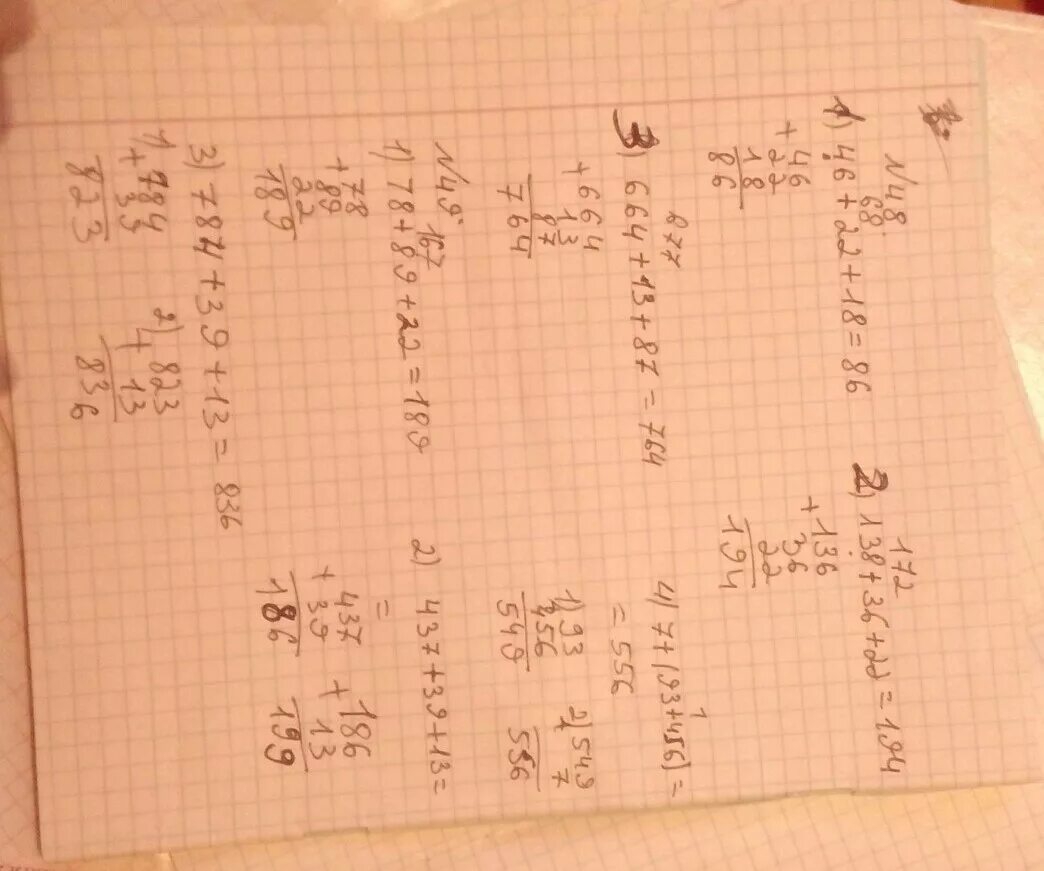 N48.
68
1) 46+22+18=86
+46
22
18
86
172
2) 138+36+22=194
+136
36
22
194
877
3) 664+13+87=764
+664
13
87
764
1
4) 7+(93+456)=
=556
1) 93
456
549
2) 549
+
7
556
N49
167
1) 78+89+22=189
+78
89
22
189
2) 437+39+13=
=
+437
39
186
+186
13
199
3) 784+39+13=836
1) 784
+
39
823
2) 823
+
13
836